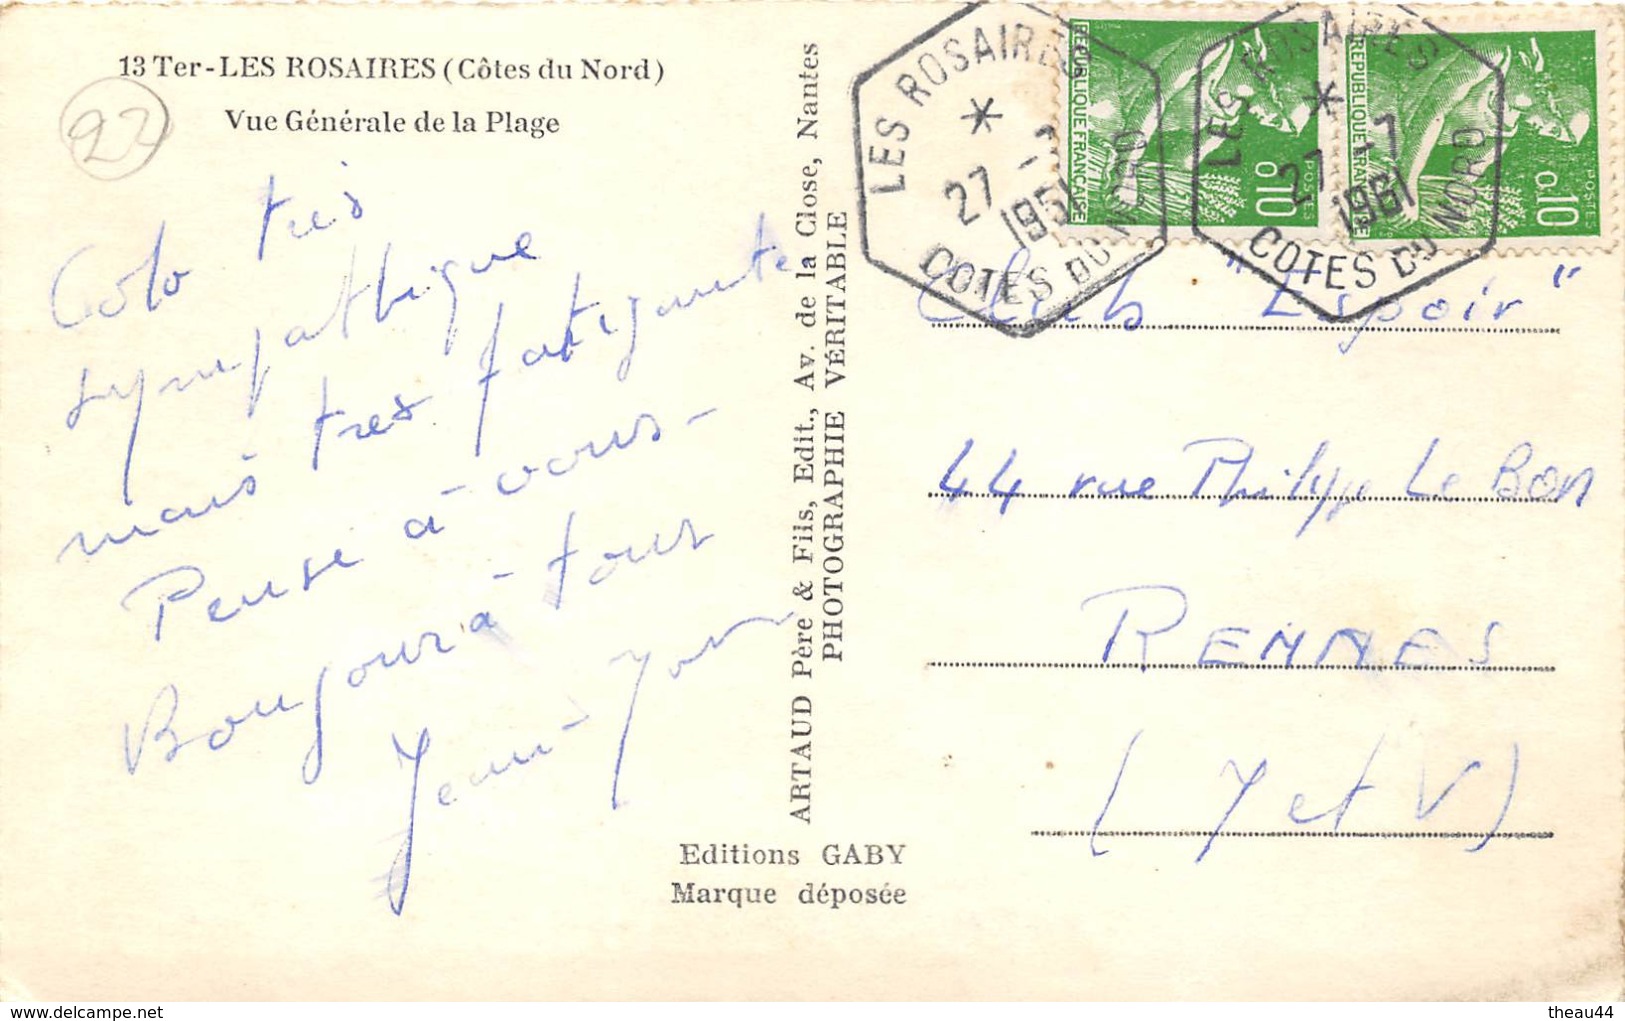 13 Ter-LES ROSAIRES (Côtes du Nord)
Vue Générale de la Plage
22
Colo très
sympathique
mais très fatigante
Pense à vous-
Bonjour à tous
Jean-Yves
ARTAUD Père & Fils, Edit., Av. de la Close, Nantes
PHOTOGRAPHIE VÉRITABLE
Editions GABY
Marque déposée
LES ROSAIRES
27 -7
1961
COTES DU NORD
REPUBLIQUE FRANÇAISE
0,10
POSTES
LES ROSAIRES
27 -7
1961
COTES DU NORD
REPUBLIQUE FRANÇAISE
0,10
POSTES
Club "Espoir"
44 rue Philippe Le Bon
RENNES
(I et V)
theau44